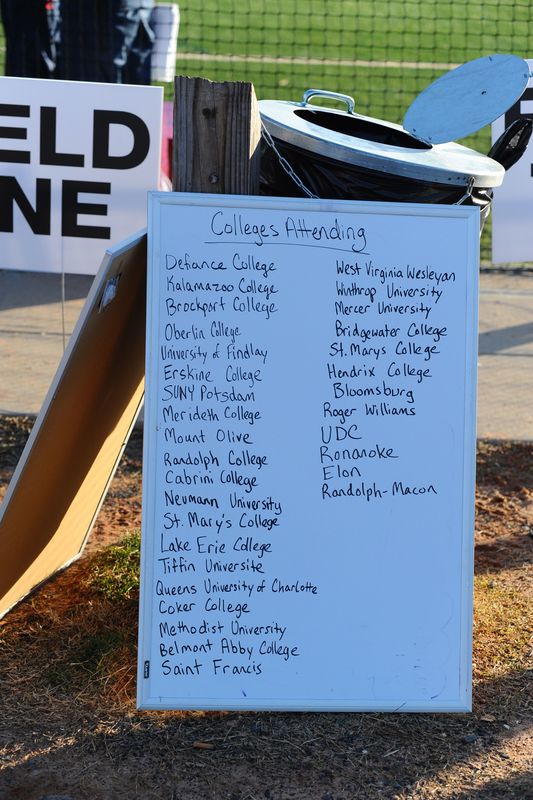 ELD
NE
Colleges Attending
Defiance College
Kalamazoo College
Brockport College
Oberlin College
University of Findlay
Erskine College
SUNY Potsdam
Merideth College
Mount Olive
Randolph College
Cabrini College
Neumann University
St. Mary's College
Lake Erie College
Tiffin Universite
Queens University of Charlotte
Coker College
Methodist University
Belmont Abby College
Saint Francis
West Virginia Wesleyan
Winthrop University
Mercer University
Bridgewater College
St. Marys College
Hendrix College
Bloomsburg
Roger Williams
UDC
Ronanoke
Elon
Randolph-Macon